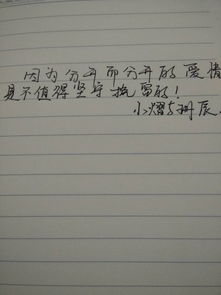 因为分开而分开的爱情
是不值得坚守挽留的！
小熠与翊辰